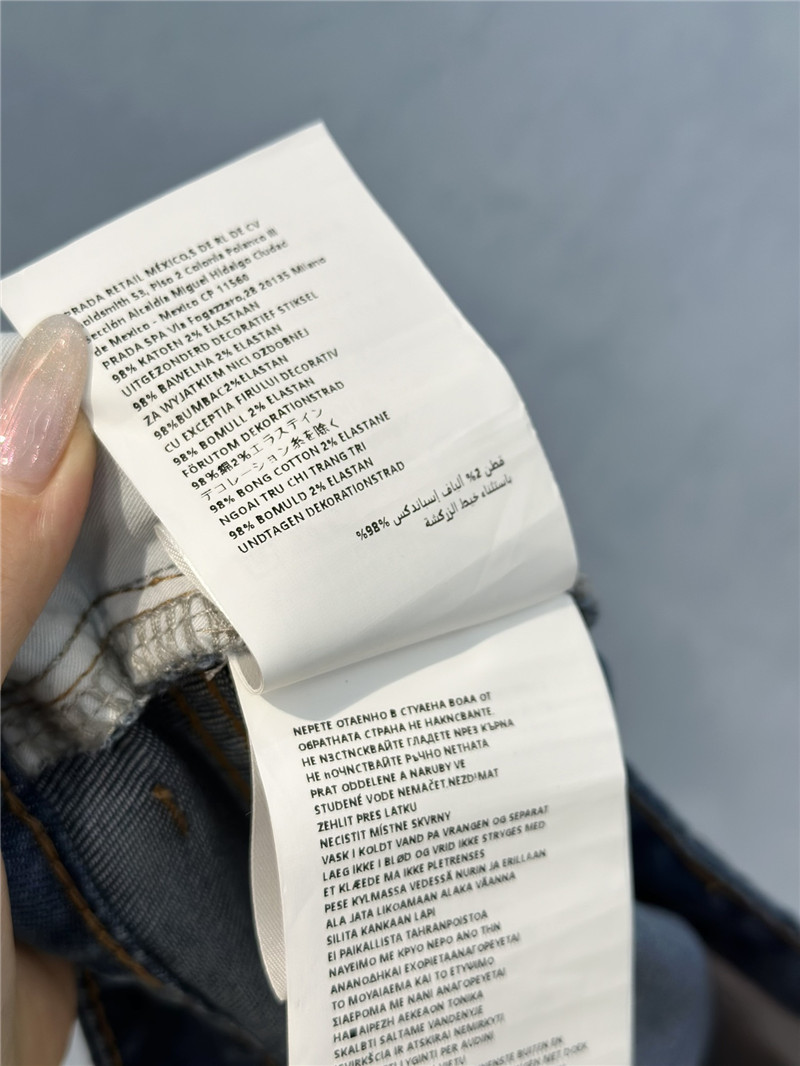 PRADA RETAIL MÉXICO,S DE RL DE CV
oldsmith 53, Piso 2 Colonia Polanco III
Sección Alcaldía Miguel Hidalgo Ciudad
de Mexico - Mexico CP 11560
PRADA SPA Via Fogazzaro,28 20135 Milano
98% KATOEN 2% ELASTAAN
UITGEZONDERD DECORATIEF STIKSEL
98% BAWELNA 2% ELASTAN
ZA WYJATKIEM NICI OZDOBNEJ
98%BUMBAC2%ELASTAN
CU EXCEPTIA FIRULUI DECORATIV
98% BOMULL 2% ELASTAN
FÖRUTOM DEKORATIONSTRAD
98%綿2%エラステイン
デコレーション糸を除く
98% BONG COTTON 2% ELASTANE
NGOAI TRU CHI TRANG TRI
98% BOMULD 2% ELASTAN
UNDTAGEN DEKORATIONSTRAD
قطن 2% ألياف إيساندكس 98%
باستثناء خيط الزركشة
NEPETE OTAEHHO B CTYAEHA BOAA OT
OбPATHATA CTPAHA HE HAKNCBANTE.
HE N3CTNCKBAЙTE ГЛAДETE NPE3 KЪPNA
HE ПOЧNCTBAЙTE PЪЧHO NETHATA
PRAT ODDELENE A NARUBY VE
STUDENÉ VODE NEMAČET.NEZDIMAT
ZEHLIT PRES LATKU
NECISTIT MÍSTNE SKVRNY
VASK I KOLDT VAND PA VRANGEN OG SEPARAT
LAEG IKKE I BLØD OG VRID IKKE STRYGES MED
ET KLÆEDE MA IKKE PLETRENSES
PESE KYLMASSA VEDESSÄ NURIN JA ERILLAAN
ALA JATA LIKOAMAAN ALAKA VÄANNA
SILITA KANKAAN LAPI
EI PAIKALLISTA TAHRANPOISTOA
NAYEIMO ME KPYO NEPO ANO THN
ANANOΔHKAI EXOPIETAANAΓOPEYETAI
TO MOYAIAEMA KAI TO ETYΨIMO
ΣIAEPOMA ME NANI ANAΓOPEYETAI
HA■AIPEZH AEKEAΩN TONIKA
SKALBTI SALTAME VANDENYJE
VIRKŠCIA IR ATSKIRAI NEMIRKYTI
LYGINTI PER AUDINI